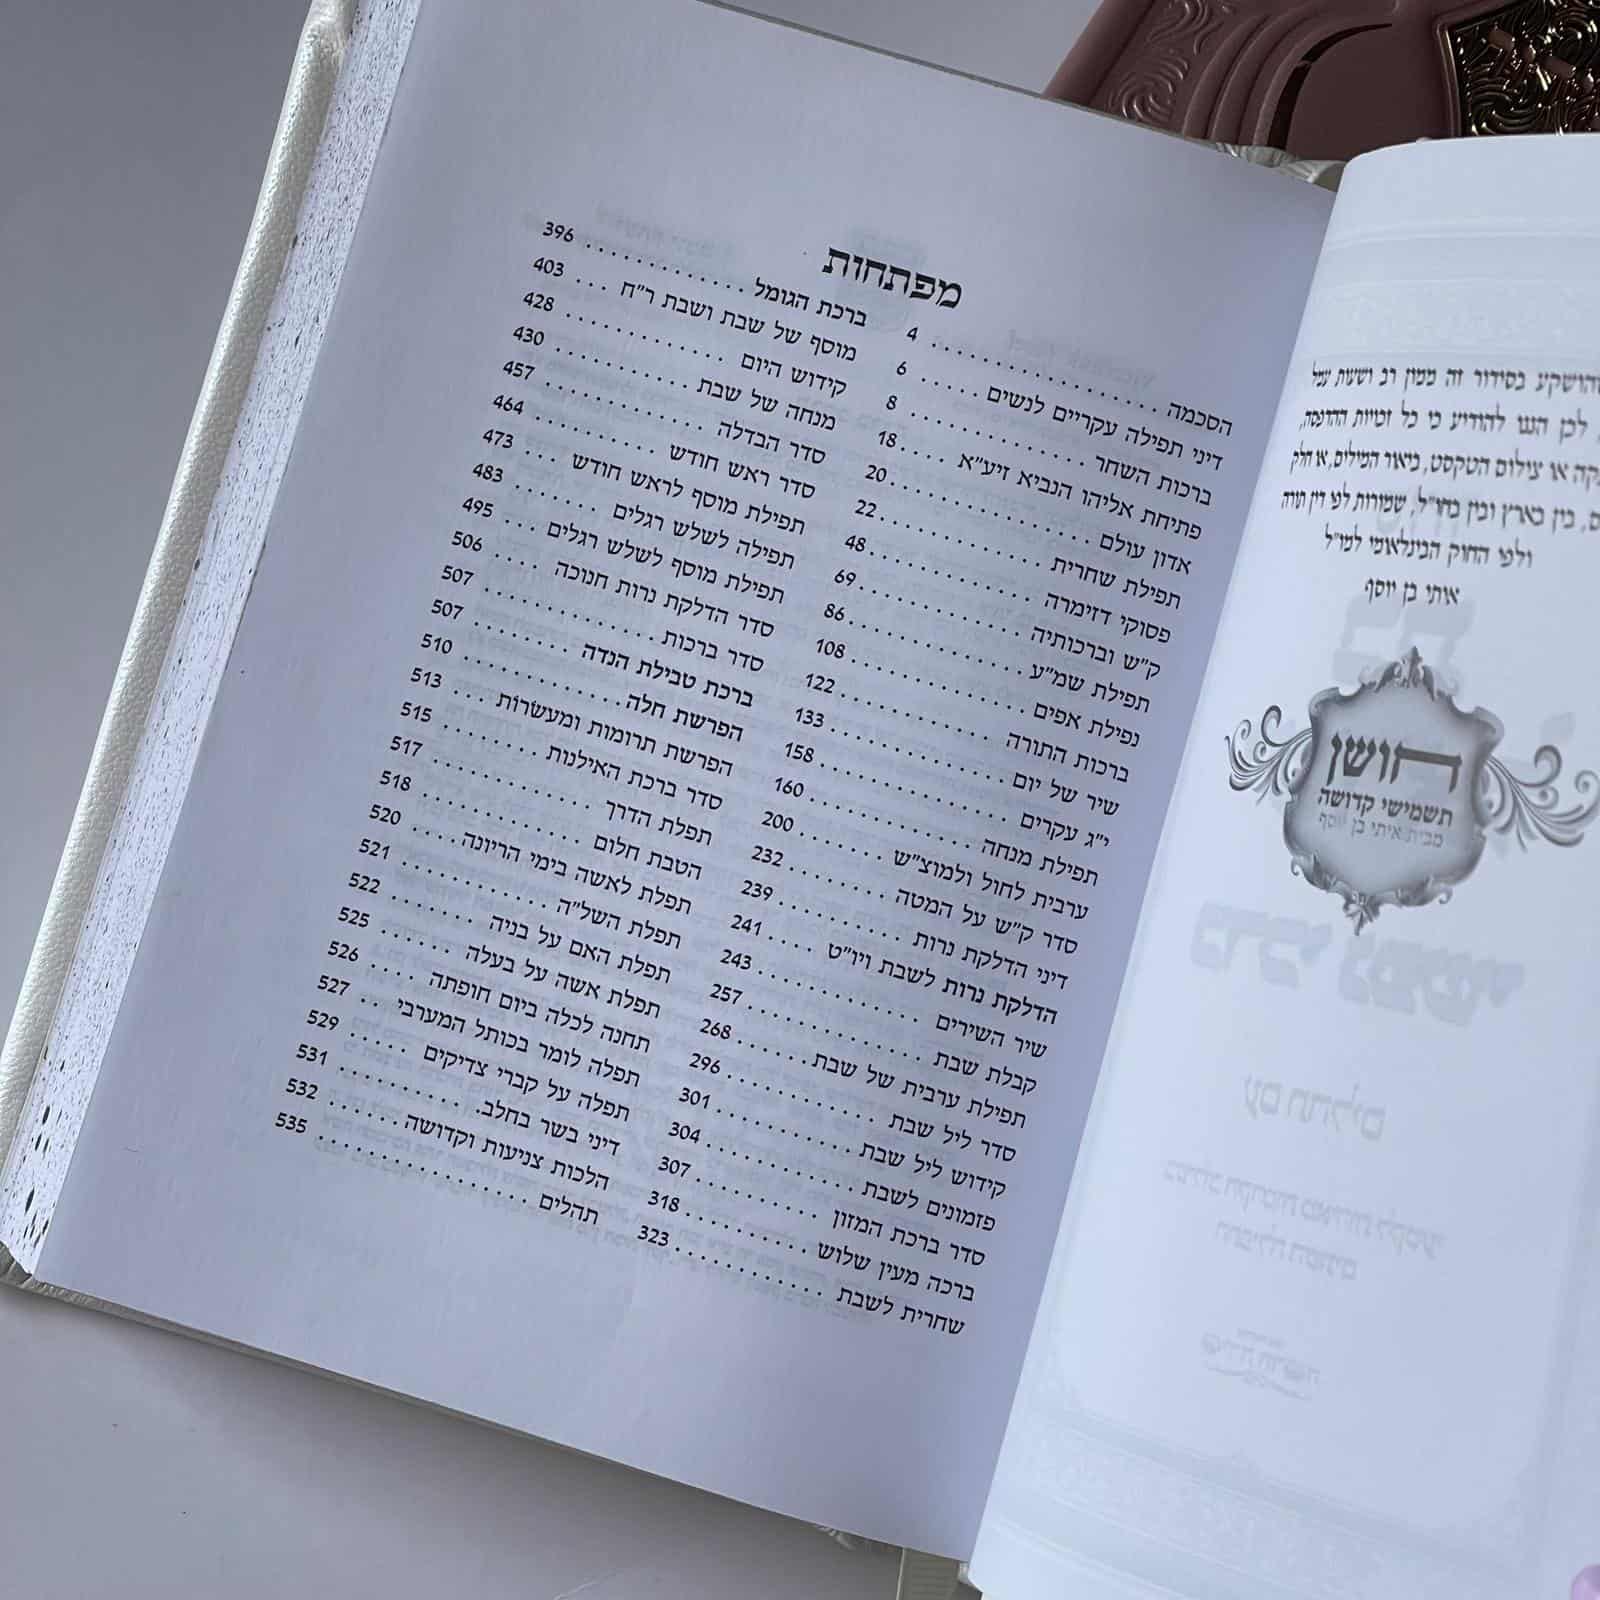 מפתחות
הסכמה ........................ 4
דיני תפילה עקריים לנשים ..... 6
ברכות השחר ............... 8
פתיחת אליהו הנביא זיע״א .... 18
אדון עולם ................ 20
תפילת שחרית ............. 22
פסוקי דזימרה ............. 48
ק״ש וברכותיה ............. 69
תפילת שמ״ע ............. 86
נפילת אפים .............. 108
ברכות התורה ............. 122
שיר של יום .............. 133
י״ג עקרים ............... 158
תפילת מנחה ............. 160
ערבית לחול ולמוצ״ש ....... 200
סדר ק״ש על המטה ........ 232
דיני הדלקת נרות .......... 239
הדלקת נרות לשבת ויו״ט .... 241
שיר השירים .............. 243
קבלת שבת .............. 257
תפילת ערבית של שבת ...... 268
סדר ליל שבת ............. 296
קידוש ליל שבת ........... 301
פזמונים לשבת ............ 304
סדר ברכת המזון .......... 307
ברכה מעין שלוש .......... 318
שחרית לשבת ............. 323
ברכת הגומל .............. 396
מוסף של שבת ושבת ר״ח ... 403
קידוש היום .............. 428
מנחה של שבת ............ 430
סדר הבדלה .............. 457
סדר ראש חודש ........... 464
תפילת מוסף לראש חודש ... 473
תפילה לשלש רגלים ....... 483
תפילת מוסף לשלש רגלים ... 495
סדר הדלקת נרות חנוכה ... 506
סדר ברכות .............. 507
ברכת טבילת הנדה ........ 507
הפרשת חלה ............. 510
הפרשת תרומות ומעשרות ... 513
סדר ברכת האילנות ....... 515
תפלת הדרך .............. 517
הטבת חלום .............. 518
תפלת לאשה בימי הריונה .... 520
תפלת השל״ה ............ 521
תפלת האם על בניה ....... 522
תפלת אשה על בעלה ...... 525
תחנה לכלה ביום חופתה .... 526
תפלה לומר בכותל המערבי .. 527
תפלה על קברי צדיקים ..... 529
דיני בשר בחלב. .......... 531
הלכות צניעות וקדושה ...... 532
תהלים ................. 535
שהושקע בסידור זה ממון רב ושעות עמל
לכן הננו להודיע כי כל זכויות ההדפסה,
או צילום הטקסט, ביאור המילים, או חלק
בין בארץ ובין בחו״ל, שמורות לפי דין תורה
ולפי החוק הבינלאומי למו״ל
איתי בן יוסף
חושן
תשמישי קדושה
מבית איתי בן יוסף